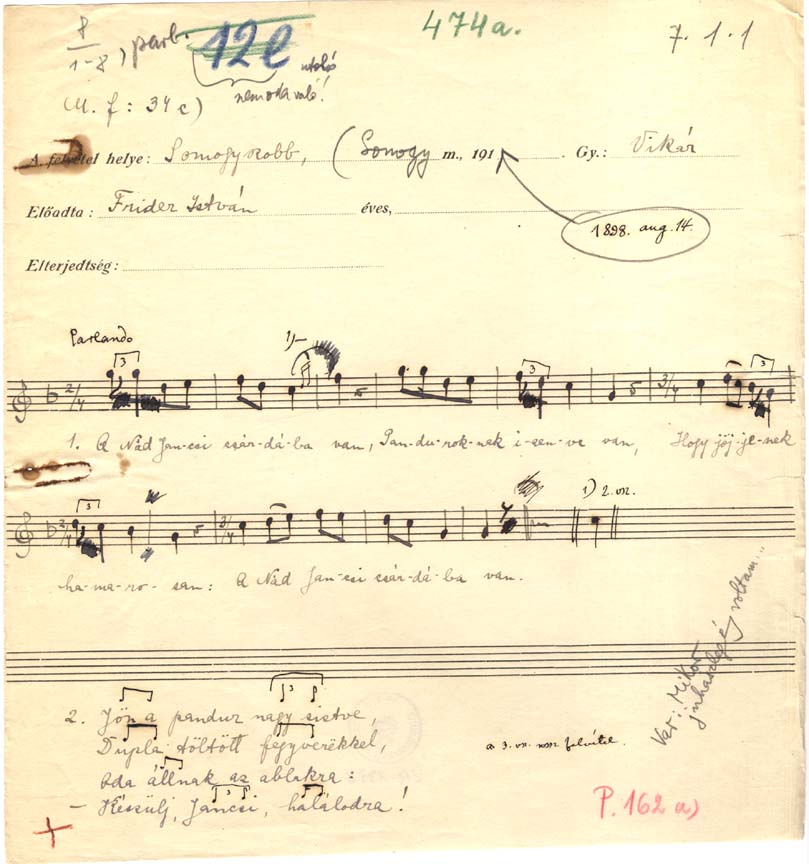 8
1-8
) parl.
12e
474a.
7. 1. 1
utolsó
nem oda való!
(M. f: 34c)
A felvétel helye: Somogyszobb, (Somogy m., 191 . Gy.: Vikár
Előadta: Frider István éves,
1898. aug. 14.
Elterjedtség:
Parlando
1. A Nád Jan-csi csár-dá-ba van, Pan-du-rok-nek i-zen-ve van, Hogy jöj-je-nek
ha-ma-ro-san: A Nád Jan-csi csár-dá-ba van.
1) 2. vsz.
2. Jön a pandur nagy sietve,
Dupla töltött fegyverékkel,
Oda állnak az ablakra:
- Készülj, Jancsi, halálodra!
a 3. vsz. nincs felvéve.
Var: Mikor
juhászlegé voltam...
P. 162 a)